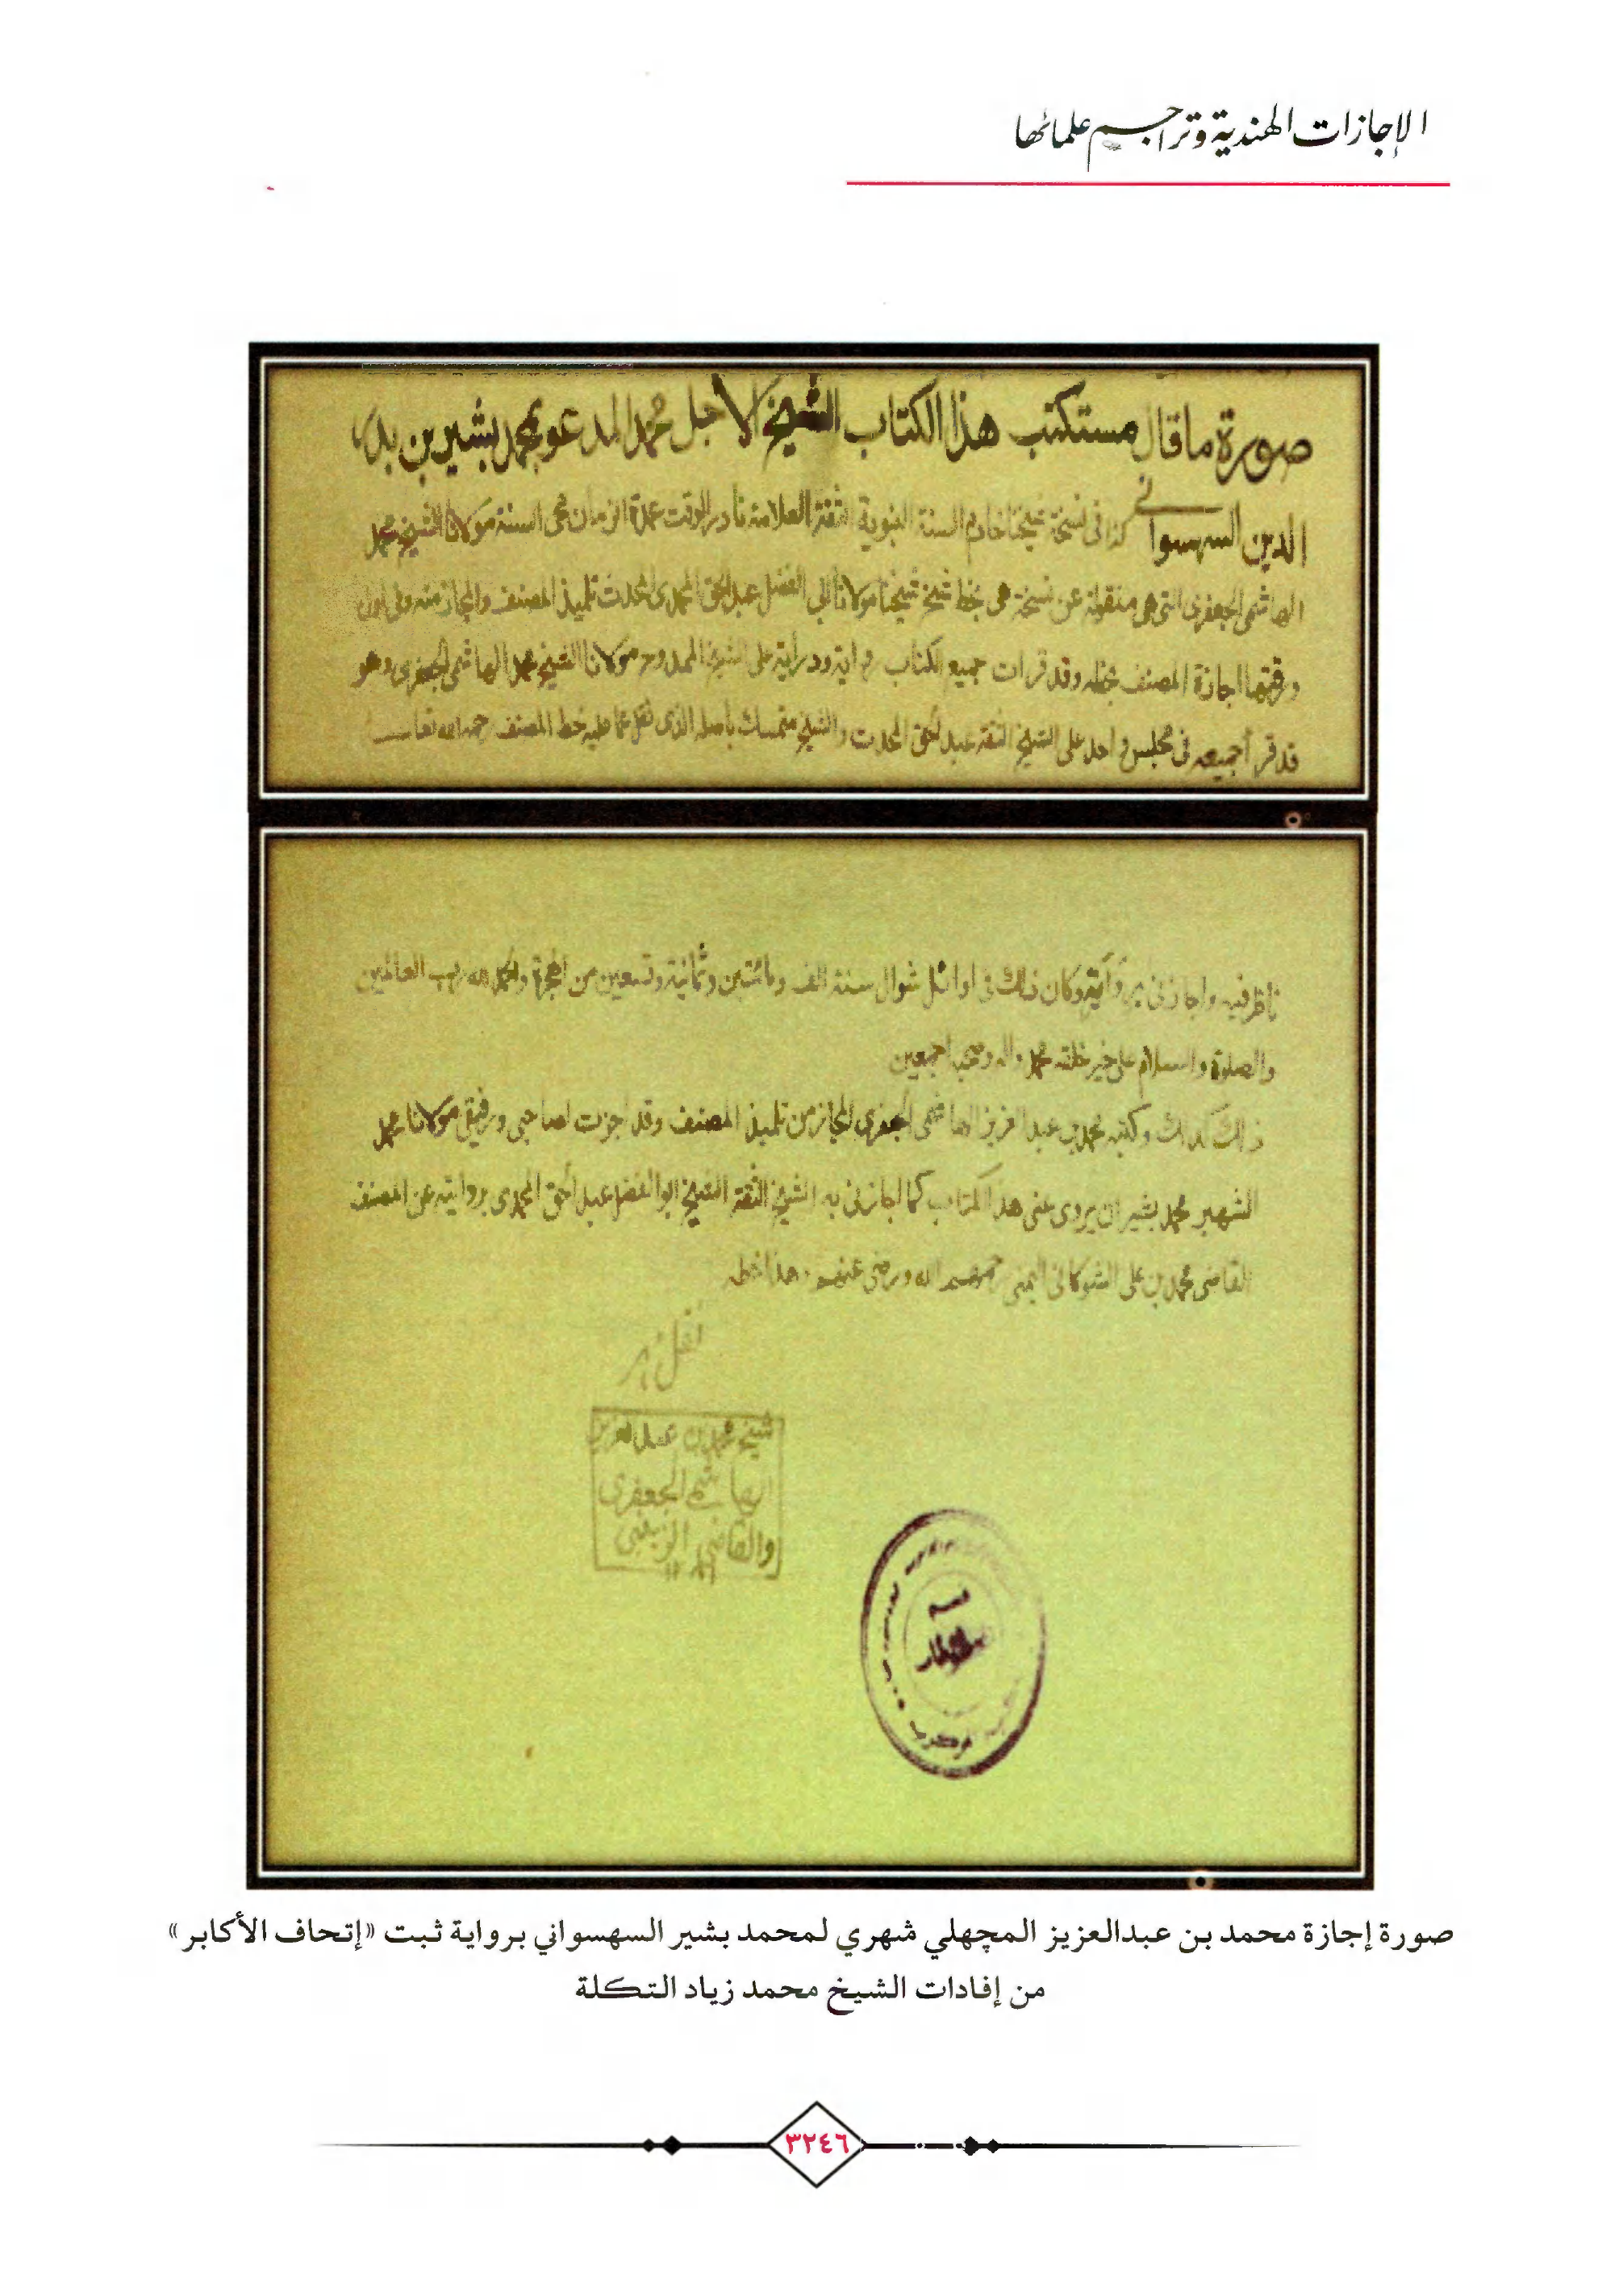 الإجازات الهندية وتراجم علمائها
صورة ما قال مستكتب هذا الكتاب الشيخ الاجل محمد المدعو بمحمد بشير بن بدر
الدين السهسواني كذا فى نسخة شيخنا خادم السنة النبوية الثقة العلامة نادر الوقت عمدة الزمان محى السنة مولانا الشيخ محمد
الهاشمى الجعفرى التى هى منقولة عن نسخة هى بخط شيخ شيخنا مولانا ابى الفضل عبد الحق المحمدى المحدث تلميذ المصنف والمجاز منه وفى اول
ورقتها اجازة المصنف بخطه وقد قرات جميع الكتاب رواية ودراية على الشيخ الممدوح مولانا الشيخ محمد الهاشمى الجعفرى وهو
قد قرأ جميعه فى مجلس واحد على الشيخ الثقة عبد الحق المحدث والشيخ متمسك باصله الذى نقل عما عليه خط المصنف رحمه الله تعالى
ناظر فيه واجازنى بروايته وكان ذلك فى اوائل شوال سنة الف ومائتين وثمانية وتسعين من الهجرة والحمد لله رب العالمين
والصلوة والسلام على خير خلقه محمد واله وصحبه اجمعين
ذلك كذلك وكتبه محمد بن عبد العزيز الهاشمى الجعفرى المجاز من تلميذ المصنف وقد اجزت لصاحبى ورفيقى مولانا محمد
الشهير بمحمد بشير ان يروى عنى هذا الكتاب كما اجازنى به الشيخ الثقة الشيخ ابو الفضل عبد الحق المحمدى بروايته عن المصنف
القاضى محمد بن على الشوكانى اليمنى رحمهم الله ورضى عنهم هذا خطه
نقل مهر
شيخ محمد بن عبد العزيز
الهاشمى الجعفرى
والقاضى الزينبى
قسم
المخطوطات
صورة إجازة محمد بن عبدالعزيز المچهلي شهري لمحمد بشير السهسواني برواية ثبت «إتحاف الأكابر»
من إفادات الشيخ محمد زياد التكلة
٣٢٤٦